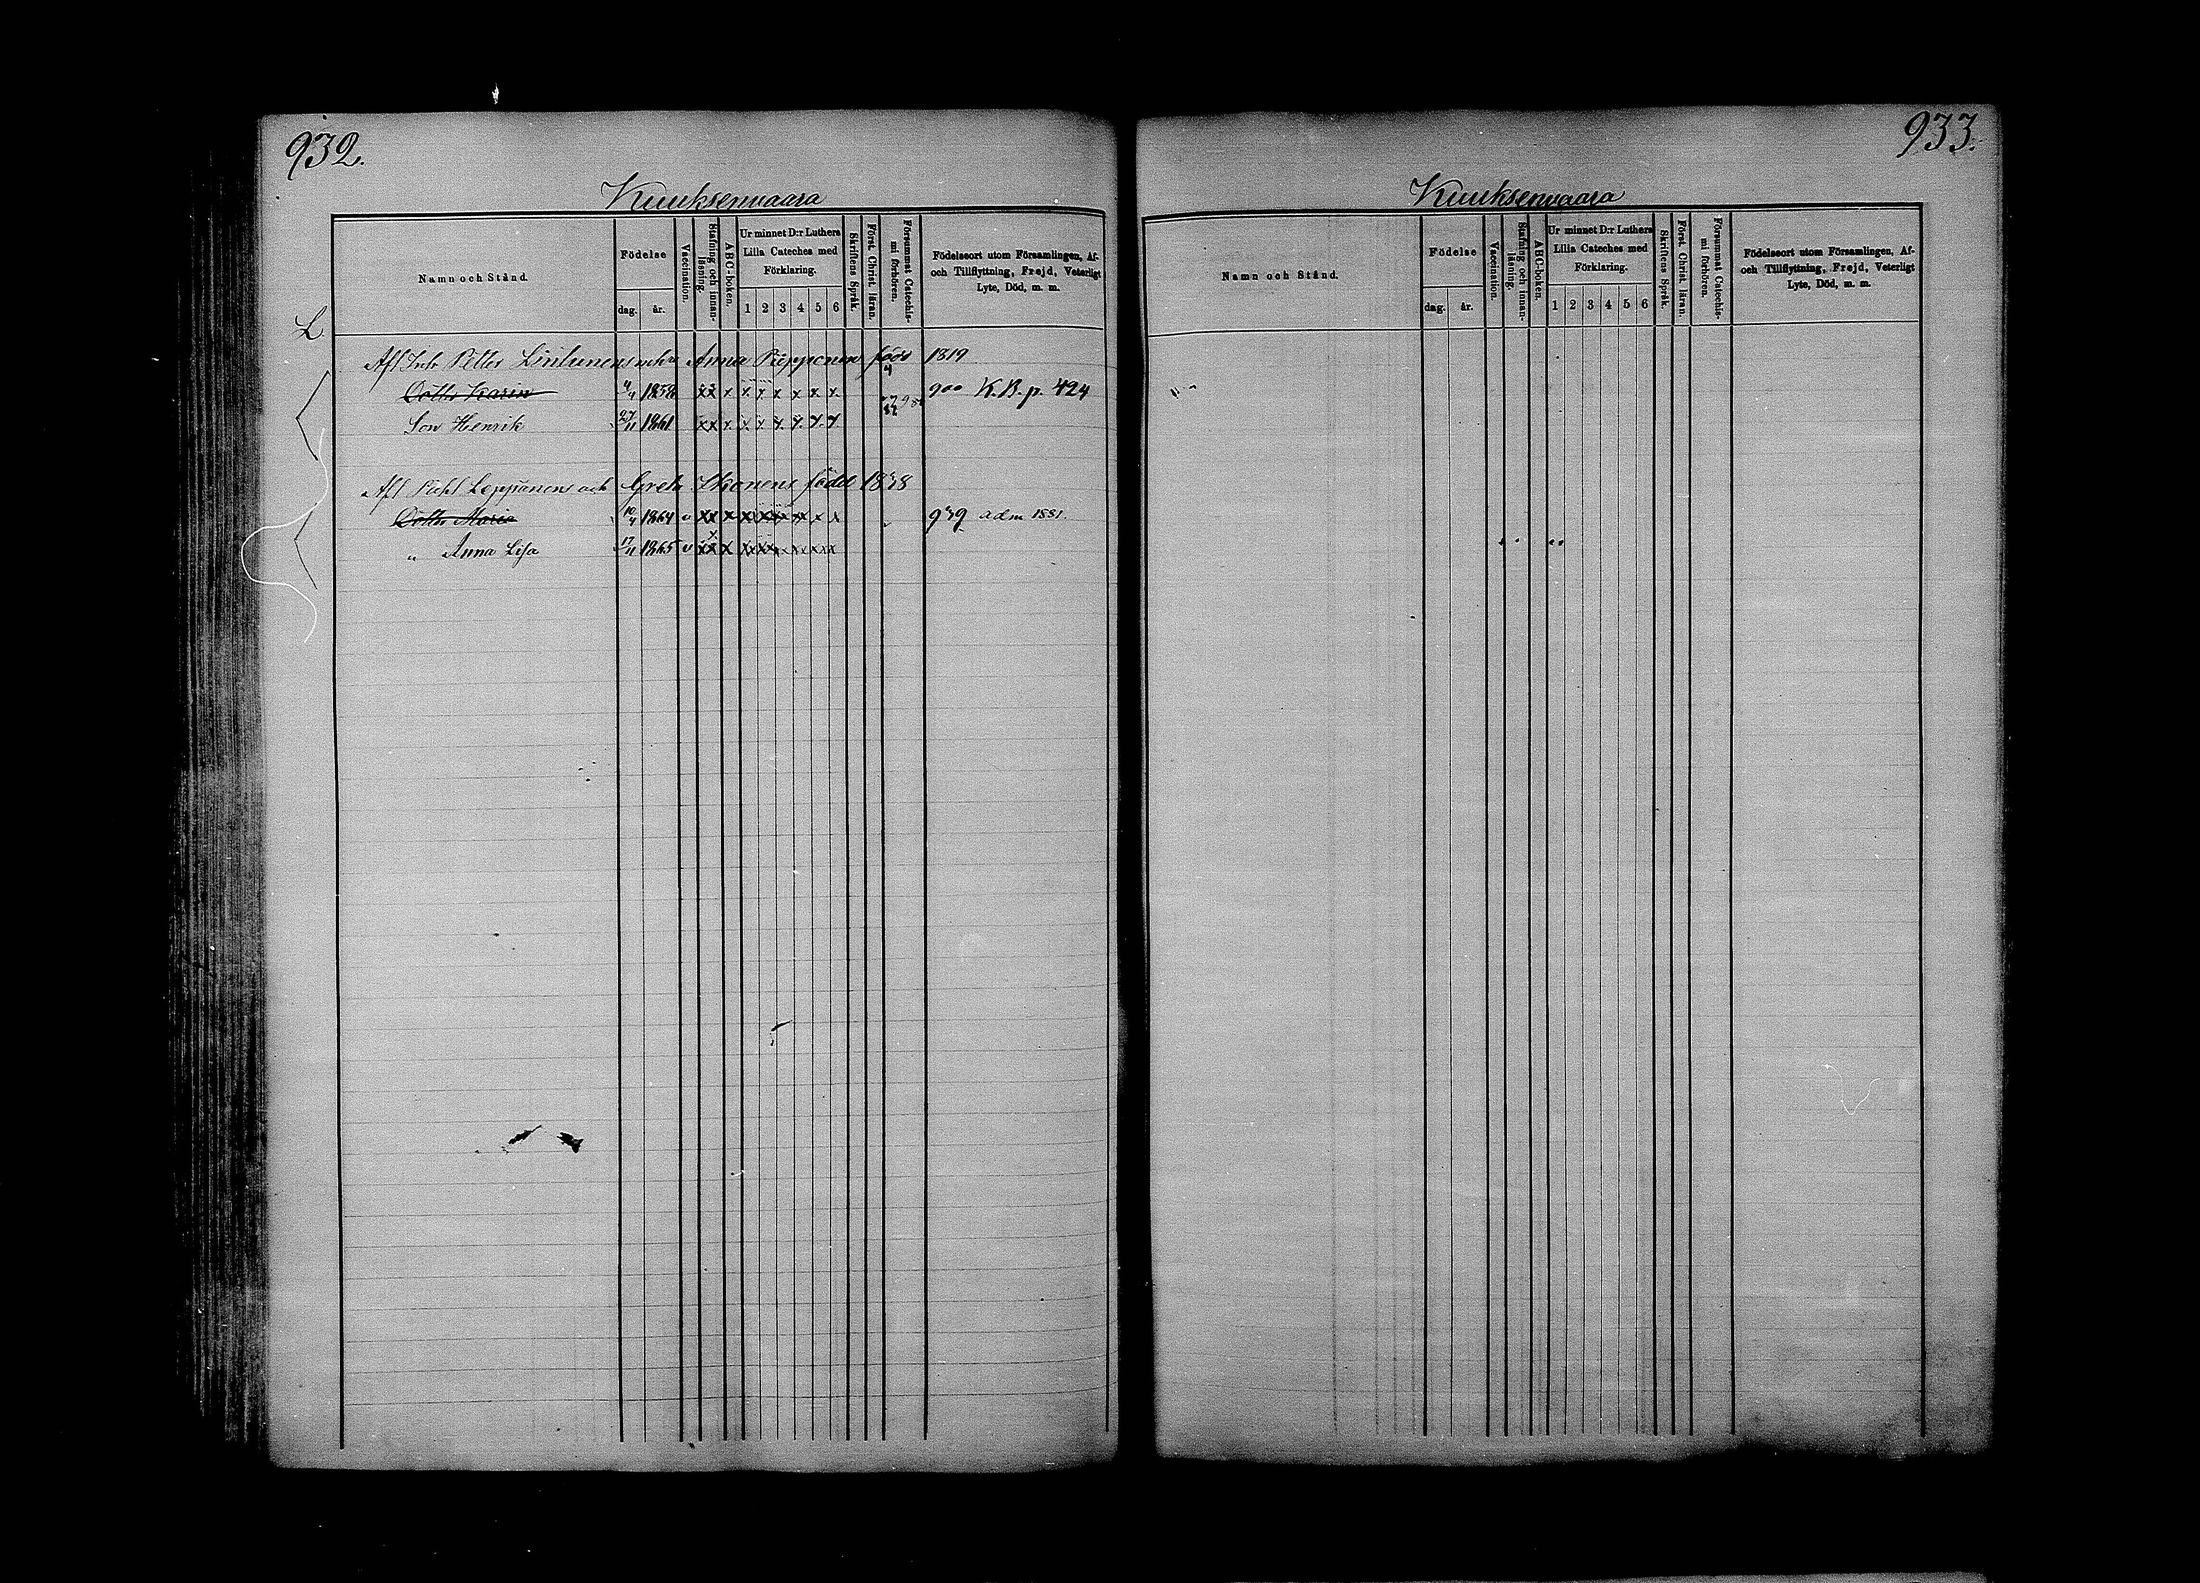 932.
Kuuksenvaara
Namn och Stånd.
Födelse
dag.
år.
Vaccination.
Stafning och innan-
läsning.
ABC-boken.
Ur minnet D:r Luthers
Lilla Cateches med
Förklaring.
1 2 3 4 5 6
Skriftens Språk.
Först. Christ. läran.
Försummat Catechis-
mi förhören.
Födelseort utom Församlingen, Af-
och Tillflyttning, Frejd, Veterligt
Lyte, Död, m. m.
L
Afl Petter Anna Piepponen född 1819
Dottr Karin 4/4 1858 x x x x x x x x x 900 K.B. p. 424
Son Henrik 27/11 1861 x x x x x x x x x
Afl Pähl Leppänens och Greta Ikonens född 1838
Dottr Maria 10/4 1864 v x x x x x x x x x 939 adm 1881.
" Anna Lisa 17/11 1865 v x x x x x x x x x
933.
Kuuksenvaara
Namn och Stånd.
Födelse
dag.
år.
Vaccination.
Stafning och innan-
läsning.
ABC-boken.
Ur minnet D:r Luthers
Lilla Cateches med
Förklaring.
1 2 3 4 5 6
Skriftens Språk.
Först. Christ. läran.
Försummat Catechis-
mi förhören.
Födelseort utom Församlingen, Af-
och Tillflyttning, Frejd, Veterligt
Lyte, Död, m. m.